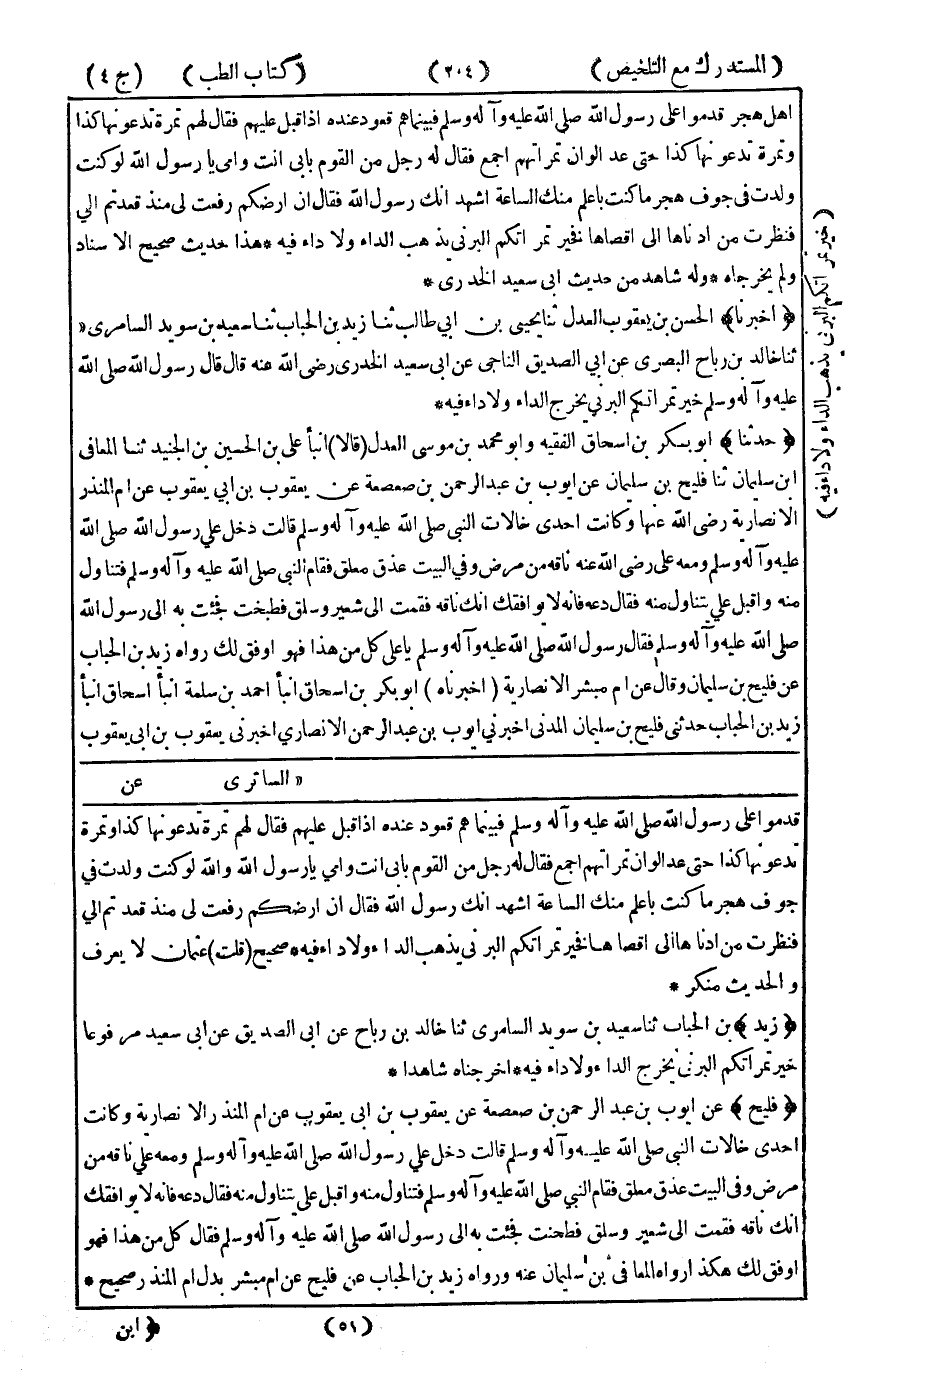 (المستدرك مع التلخيص) (٢٠٤) (كتاب الطب) (ج ٤)
اهل هجر قدموا على رسول الله صلى الله عليه وآله وسلم فبينما هم قعود عنده اذ اقبل عليهم فقال لهم تمرة تدعونها كذا
وتمرة تدعونها كذا حتى عد الوان تمراتهم اجمع فقال له رجل من القوم بابى انت وامى يا رسول الله لو كنت
ولدت فى جوف هجر ما كنت باعلم منك الساعة اشهد انك رسول الله فقال ان ارضكم رفعت لى منذ قعدتم الي
فنظرت من ادناها الى اقصاها فخير تمراتكم البرنى يذهب الداء ولا داء فيه *هذا حديث صحيح الاسناد
ولم يخرجاه *وله شاهد من حديث ابى سعيد الخدرى *
﴿ اخبرنا﴾ الحسن بن يعقوب العدل ثنا يحيى بن ابي طالب ثنا زيد بن الحباب ثنا سعيد بن سويد السامرى «
ثنا خالد بن رباح البصرى عن ابي الصديق الناجى عن ابى سعيد الخدرى رضى الله عنه قال قال رسول الله صلى الله
عليه وآله وسلم خير تمراتكم البرني يخرج الداء ولا داء فيه*
﴿ حدثنا ﴾ ابو بكر بن اسحاق الفقيه وابو محمد بن موسى العدل (قالا) انبأ على بن الحسين بن الجنيد ثنا المعافى
ابن سليمان ثنا فليح بن سليمان عن ايوب بن عبد الرحمن بن صعصعة عن يعقوب بن ابي يعقوب عن ام المنذر
الانصارية رضى الله عنها وكانت احدى خالات النبى صلى الله عليه وآله وسلم قالت دخل علي رسول الله صلى الله
عليه وآله وسلم ومعه على رضى الله عنه ناقه من مرض وفي البيت عذق معلق فقام النبي صلى الله عليه وآله وسلم فتناول
منه واقبل علي يتناول منه فقال دعه فانه لا يوافقك انك ناقه فقمت الى شعير وسلق فطبخت فجئت به الى رسول الله
صلى الله عليه وآله وسلم فقال رسول الله صلى الله عليه وآله وسلم يا على كل من هذا فهو اوفق لك رواه زيد بن الحباب
عن فليح بن سليمان وقال عن ام مبشر الانصارية (اخبرناه) ابو بكر بن اسحاق انبأ احمد بن سلمة انبأ اسحاق انبأ
زيد بن الحباب حدثنى فليح بن سليمان المدنى اخبرني ايوب بن عبد الرحمن الانصاري اخبرنى يعقوب بن ابى يعقوب
عن
(خير تمراتكم البرنى يذهب الداء ولا داء فيه)
« الساترى
قدموا على رسول الله صلى الله عليه وآله وسلم فبينما هم قعود عنده اذ اقبل عليهم فقال لهم تمرة تدعونها كذا وتمرة
تدعونها كذا حتى عد الوان تمراتهم اجمع فقال له رجل من القوم بابى انت وامي يا رسول الله والله لو كنت ولدت في
جوف هجر ما كنت باعلم منك الساعة اشهد انك رسول الله فقال ان ارضكم رفعت لى منذ قعدتم الي
فنظرت من ادناها الى اقصاها فخير تمراتكم البرنى يذهب الداء ولا داء فيه*صحيح (قلت) عثمان لا يعرف
والحديث منكر *
﴿ زيد ﴾ بن الحباب ثنا سعيد بن سويد السامرى ثنا خالد بن رباح عن ابى الصديق عن ابى سعيد مرفوعا
خير تمراتكم البرنى يخرج الداء ولا داء فيه*اخرجناه شاهدا *
﴿ فليح ﴾ عن ايوب بن عبد الرحمن بن صعصعة عن يعقوب بن ابى يعقوب عن ام المنذر الانصارية وكانت
احدى خالات النبى صلى الله عليه وآله وسلم قالت دخل علي رسول الله صلى الله عليه وآله وسلم ومعه علي ناقه من
مرض وفى البيت عذق معلق فقام النبي صلى الله عليه وآله وسلم فتناول منه واقبل على يتناول منه فقال دعه فانه لا يوافقك
انك ناقه فقمت الى شعير وسلق فطحنت فجئت به الى رسول الله صلى الله عليه وآله وسلم فقال كل من هذا فهو
اوفق لك هكذا رواه المعافى بن سليمان عنه ورواه زيد بن الحباب عن فليح عن ام مبشر بدل ام المنذر صحيح *
(٥١) ﴿ ابن